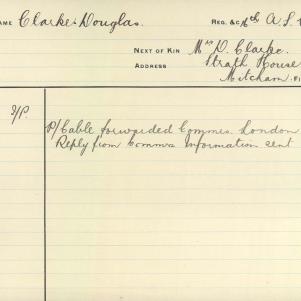 NAME Clarke. Douglas. REG. &C. 4th A S
NEXT OF KIN Mrs D. Clarke.
ADDRESS Strath House
Mitcham.
P/Cable forwarded Commrs. London
Reply from Commrs Information sent